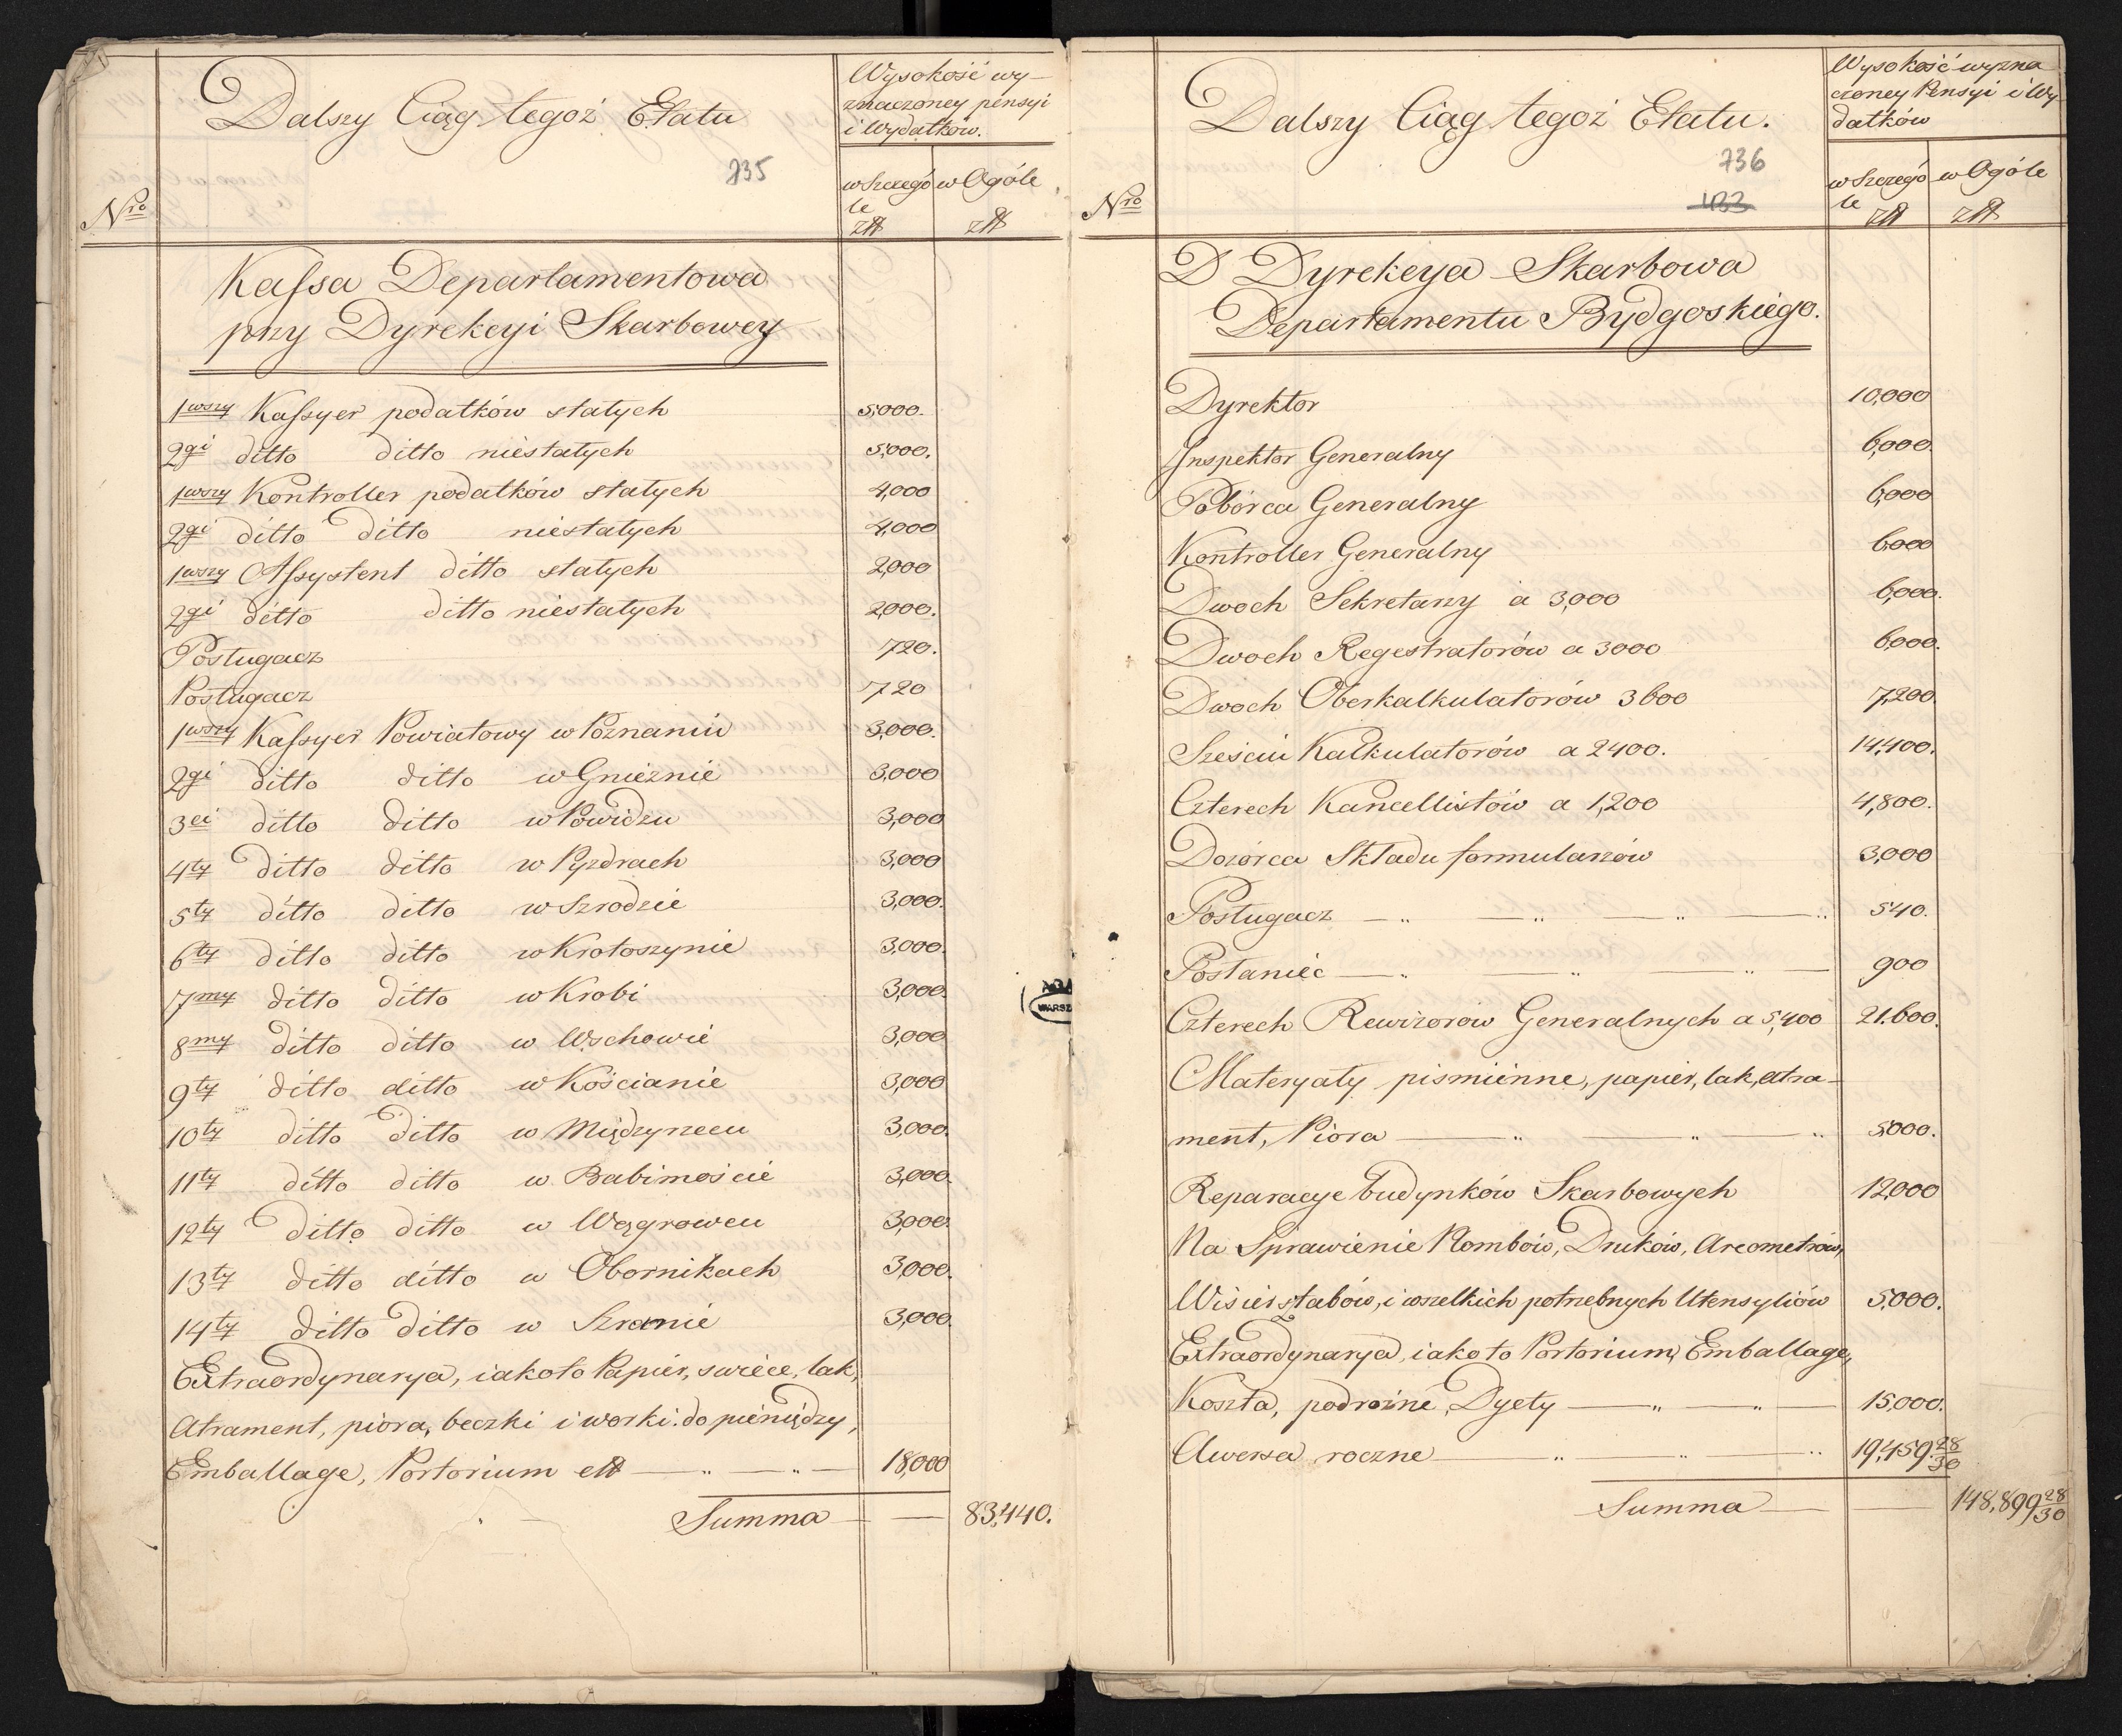 Dalszy Ciąg tegoż Etatu
735
Wysokość wy-
znaczoney pensyi
i Wydatków.
w Szczegó
le
w Ogóle
Nro
złł
złł
Kaſsa Departamentowa
przy Dyrekcyi Skarbowey
1wszy Kaſsyer podatków stałych 5,000.
2gi ditto ditto niestałych 5,000.
1wszy Kontroller podatków stałych 4,000
2gi ditto ditto niestałych 4,000
1wszy Aſsystent ditto stałych 2,000
2gi ditto ditto niestałych 2,000.
Posługacz 720.
Posługacz 720
1wszy Kaſsyer Powiatowy w Poznaniu 3,000.
2gi ditto ditto w Gnieznie 3,000
3ci ditto ditto w Powidzu 3,000
4ty ditto ditto w Pyzdrach 3,000
5ty ditto ditto w Szrodzie 3,000.
6ty ditto ditto w Krotoszynie 3,000.
7my ditto ditto w Krobi 3,000.
8my ditto ditto w Wschowie 3,000
9ty ditto ditto w Kościanie 3,000
10ty ditto ditto w Międzyrzecu 3,000.
11ty ditto ditto w Babimoście 3,000.
12ty ditto ditto w Wągrowcu 3,000.
13ty ditto ditto w Obornikach 3,000.
14ty ditto ditto w Szremie 3,000.
Extraordynarya, iakoto Papier, swiece, lak,
Atrament, piora, beczki i worki do pieniędzy,
Emballage, Portorium ett 18,000
Summa 83,440.
Dalszy Ciąg tegoż Etatu.
736
433
Wysokość wyzna
czoney Pensyi i Wy-
datków
w Szczegó
le
w Ogóle
Nro
złł
złł
D Dyrekcya Skarbowa
Departamentu Bydgoskiego.
Dyrektor 10,000
Inspektor Generalny 6,000.
Pobórca Generalny 6,000
Kontroller Generalny 6,000
Dwoch Sekretarzy a 3,000 6,000.
Dwoch Regestratorów a 3000 6,000.
Dwoch Oberkalkulatorów 3600 7,200.
Sześciu Kalkulatorów a 2400. 14,400.
Czterech Kancellistów a 1,200 4,800.
Dozórca Składu formularzów 3,000
Posługacz 540.
Posłaniec 900
Czterech Rewizorow Generalnych a 5,400 21.600.
Materyały pismienne, papier, lak, atra-
ment, Piora 5,000.
Reparacye budynków Skarbowych 12,000
Na Sprawienie Plombów, Druków, Areometrów,
Wisiersztabów, i wszelkich potrzebnych Utensyliów 5,000.
Extraordynarya, iako to Portorium, Emballage,
Koszta, podrożne, Dyety 15,000.
Awersa roczne 19,459.28/30
Summa 148,899 28/30